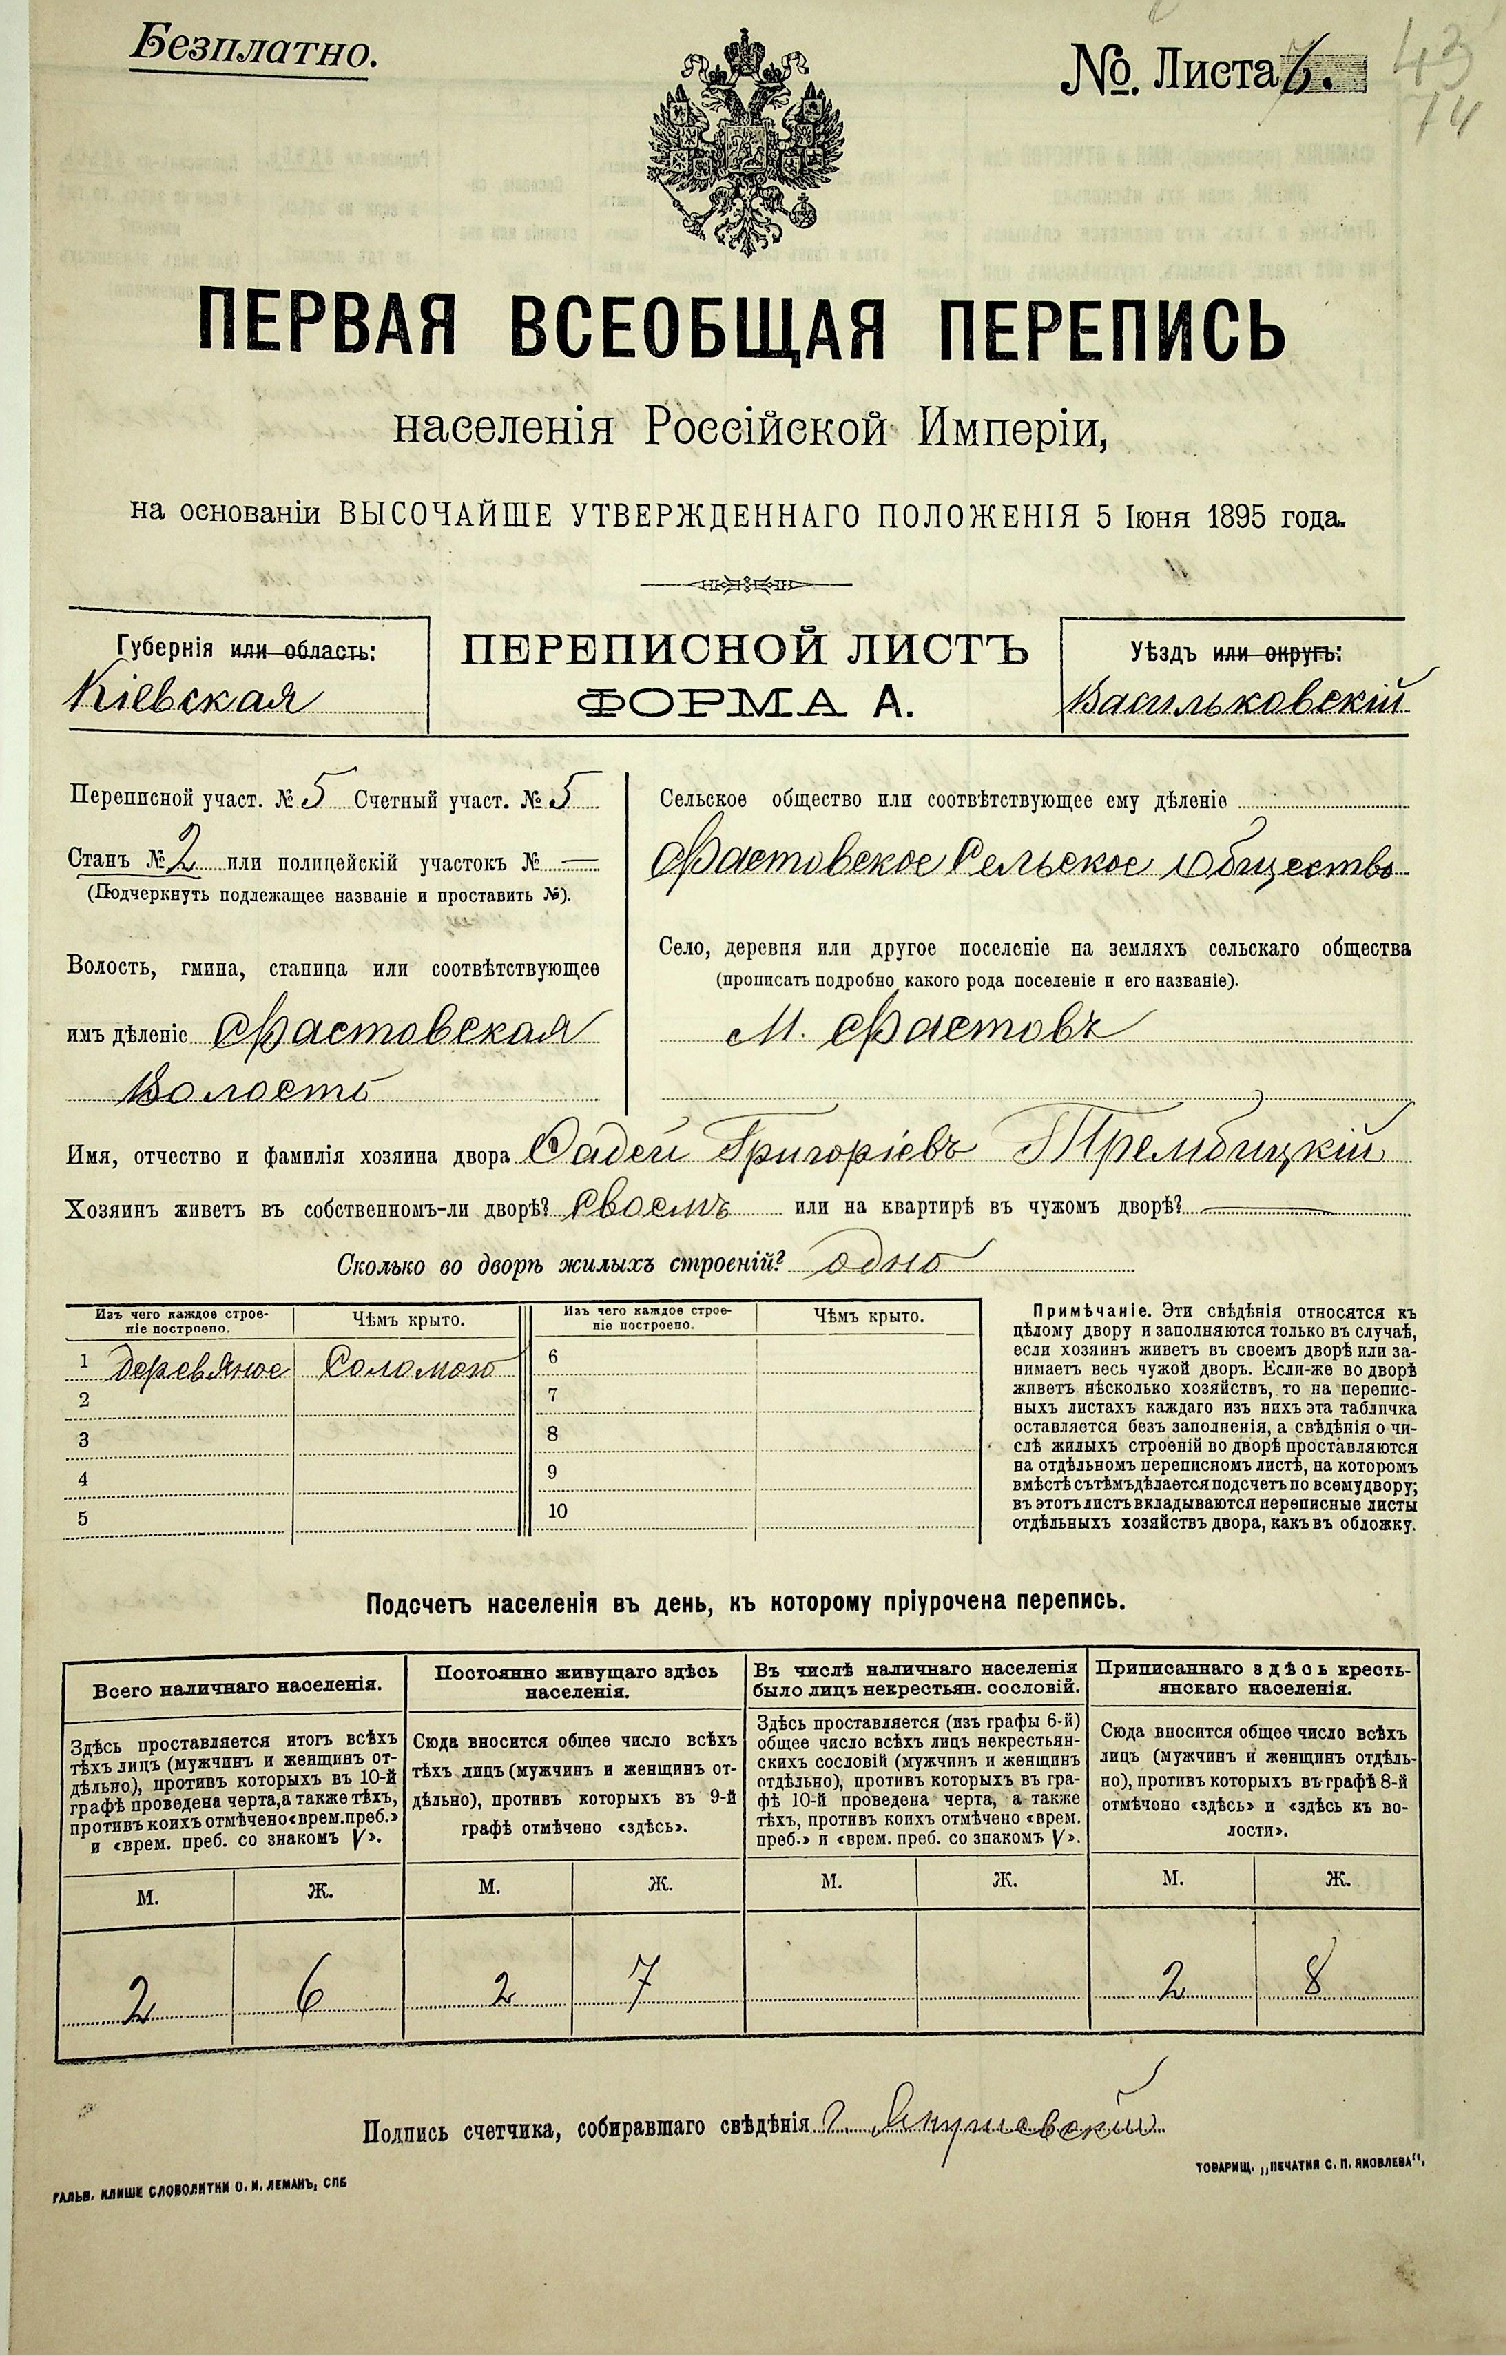 Безплатно.
№ Листа 6.
43
74
ПЕРВАЯ ВСЕОБЩАЯ ПЕРЕПИСЬ
населенія Россійской Имперіи,
на основаніи ВЫСОЧАЙШЕ УТВЕРЖДЕННАГО ПОЛОЖЕНІЯ 5 Іюня 1895 года.
Губернія или область:
Кіевская
ПЕРЕПИСНОЙ ЛИСТЪ
ФОРМА А.
Уѣздъ или округъ:
Васильковскій
Переписной участ. № 5 Счетный участ. № 5
Станъ № 2 или полицейскій участокъ № —
(Подчеркнуть подлежащее названіе и проставить №).
Волость, гмина, станица или соотвѣтствующее
имъ дѣленіе Фастовская
Волость
Сельское общество или соотвѣтствующее ему дѣленіе
Фастовское Сельское Общество
Село, деревня или другое поселеніе на земляхъ сельскаго общества
(прописать подробно какого рода поселеніе и его названіе).
М. Фастовъ
Имя, отчество и фамилія хозяина двора Фадей Григоріевъ Трембицкій
Хозяинъ живетъ въ собственномъ-ли дворѣ? своемъ или на квартирѣ въ чужомъ дворѣ? —
Сколько во дворѣ жилыхъ строеній? одно
Изъ чего каждое строе-
ніе построено.
Чѣмъ крыто.
1 деревяное Соломою
2
3
4
5
Изъ чего каждое строе-
ніе построено.
Чѣмъ крыто.
6
7
8
9
10
Примѣчаніе. Эти свѣдѣнія относятся къ
цѣлому двору и заполняются только въ случаѣ,
если хозяинъ живетъ въ своемъ дворѣ или за-
нимаетъ весь чужой дворъ. Если-же во дворѣ
живетъ нѣсколько хозяйствъ, то на перепис-
ныхъ листахъ каждаго изъ нихъ эта табличка
оставляется безъ заполненія, а свѣдѣнія о чи-
слѣ жилыхъ строеній во дворѣ проставляются
на отдѣльномъ переписномъ листѣ, на которомъ
вмѣстѣ съ тѣмъ дѣлается подсчетъ по всему двору;
въ этотъ листъ вкладываются переписные листы
отдѣльныхъ хозяйствъ двора, какъ въ обложку.
Подсчетъ населенія въ день, къ которому пріурочена перепись.
Всего наличнаго населенія.
Здѣсь проставляется итогъ всѣхъ
тѣхъ лицъ (мужчинъ и женщинъ от-
дѣльно), противъ которыхъ въ 10-й
графѣ проведена черта, а также тѣхъ,
противъ коихъ отмѣчено «врем. преб.»
и «врем. преб. со знакомъ V».
М. Ж.
2 6
Постоянно живущаго здѣсь
населенія.
Сюда вносится общее число всѣхъ
тѣхъ лицъ (мужчинъ и женщинъ от-
дѣльно), противъ которыхъ въ 9-й
графѣ отмѣчено «здѣсь».
М. Ж.
2 7
Въ числѣ наличнаго населенія
было лицъ некрестьян. сословій.
Здѣсь проставляется (изъ графы 6-й)
общее число всѣхъ лицъ некрестьян-
скихъ сословій (мужчинъ и женщинъ
отдѣльно), противъ которыхъ въ гра-
фѣ 10-й проведена черта, а также
тѣхъ, противъ коихъ отмѣчено «врем.
преб.» и «врем. преб. со знакомъ V».
М. Ж.
Приписаннаго здѣсь кресть-
янскаго населенія.
Сюда вносится общее число всѣхъ
лицъ (мужчинъ и женщинъ отдѣль-
но), противъ которыхъ въ графѣ 8-й
отмѣчено «здѣсь» и «здѣсь къ во-
лости».
М. Ж.
2 8
Подпись счетчика, собиравшаго свѣдѣнія
ГАЛЬВ. КЛИШЕ СЛОВОЛИТНИ О. И. ЛЕМАНЪ, СПБ
ТОВАРИЩ. „ПЕЧАТНЯ С. П. ЯКОВЛЕВА".